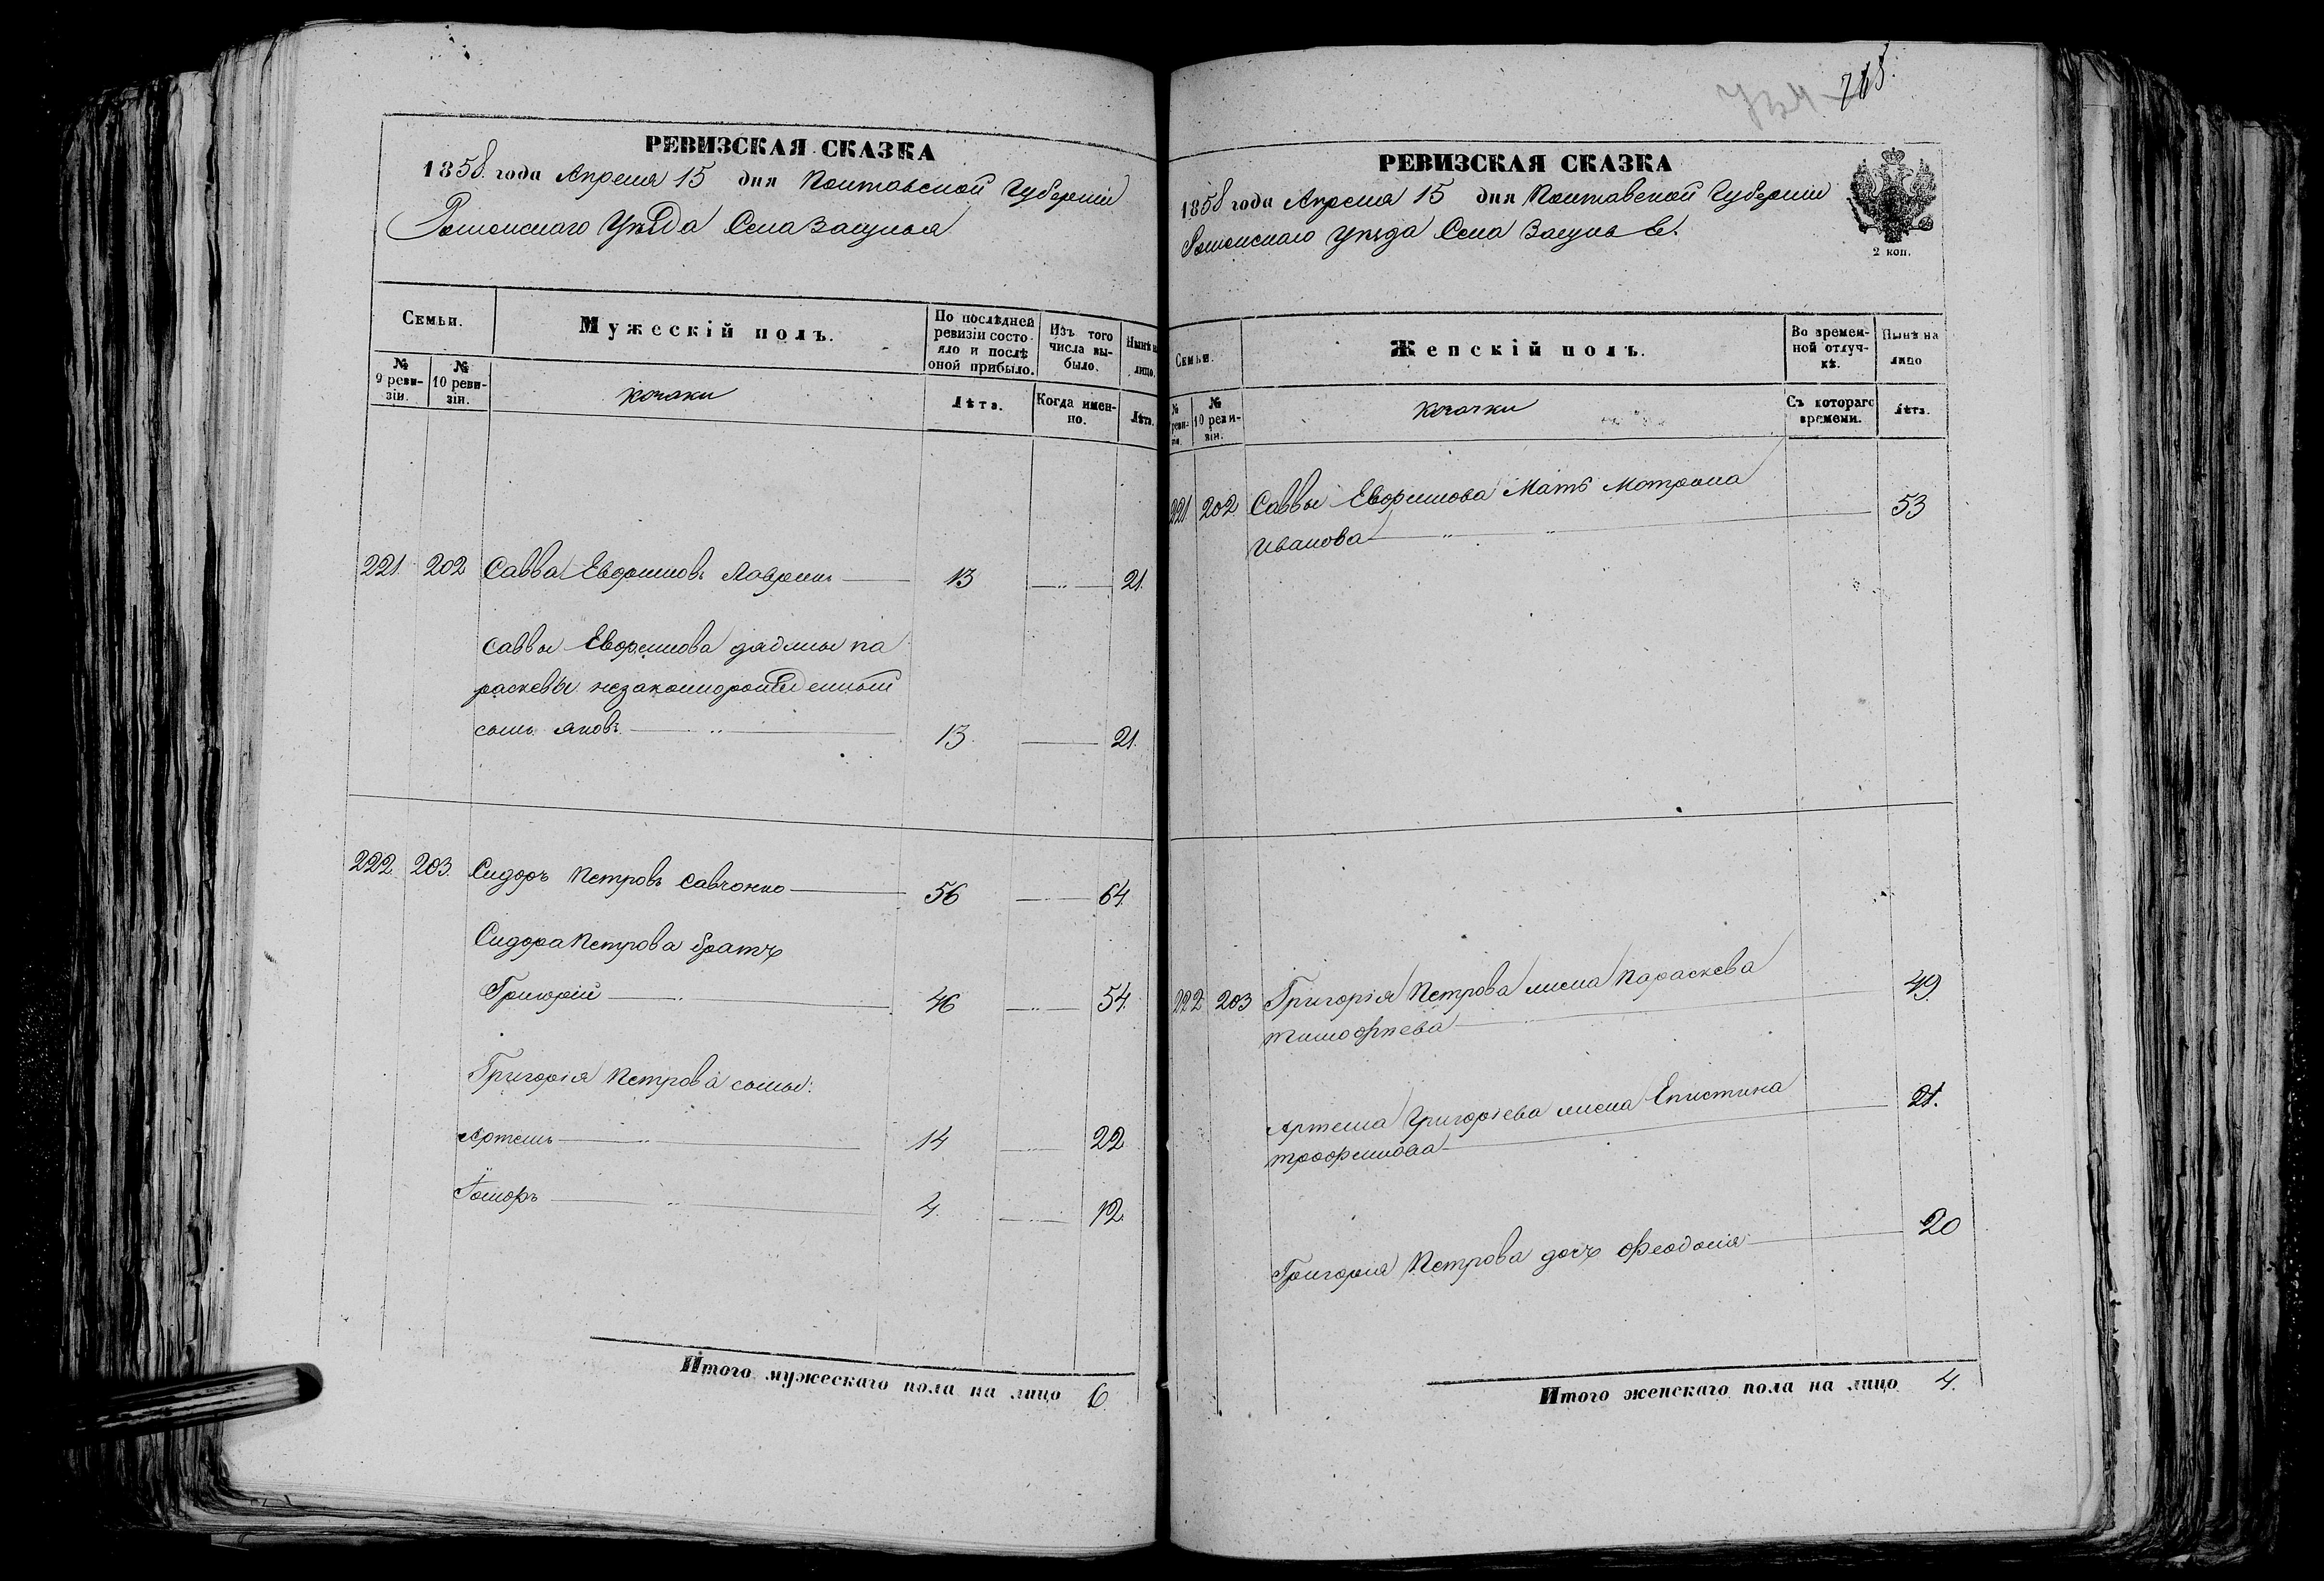 РЕВИЗСКАЯ СКАЗКА
1858 года Апреля 15 дня Полтавской Губерніи
Роменскаго Уѣзда Села Засулья
Семьи.
Мужескій полъ.
По послѣдней ревизіи состояло и послѣ оной прибыло.
Изъ того числа выбыло.
Нынѣ на лицо.
№ 9 ревизіи.
№ 10 ревизіи.
Козаки
Лѣта.
Когда именно.
Лѣта.
221. 202 Савва Евфимовъ Лавринъ 13 21.
Саввы Евфимова дядины Па
раскевы незаконнорожденный
сынъ Яковъ 13. 21.
222. 203. Сидоръ Петровъ Савченко 56 64.
Сидора Петрова братъ
Григорій 46 54.
Григорія Петрова сыны:
Артемъ 14 22
4. 12.
Итого мужескаго пола на лицо 6.
718.
РЕВИЗСКАЯ СКАЗКА
1858 года Апреля 15 дня Полтавской Губерніи
Роменскаго Уѣзда Села Засулья.
2 коп.
Семьи.
Женскій полъ.
Во временной отлучкѣ.
Нынѣ на лицо
№ ревизіи.
№ 10 ревизіи.
Козачки
Съ котораго времени.
Лѣта.
221 202 Саввы Евфимова Мать Мотрона 53
Иванова
222 203 Григорія Петрова жена Параскева 49.
Тимофѣева
Артема Григоріева жена Епистина 21.
Трофимова
Григорія Петрова дочь Феодосія 20
Итого женскаго пола на лицо 4.